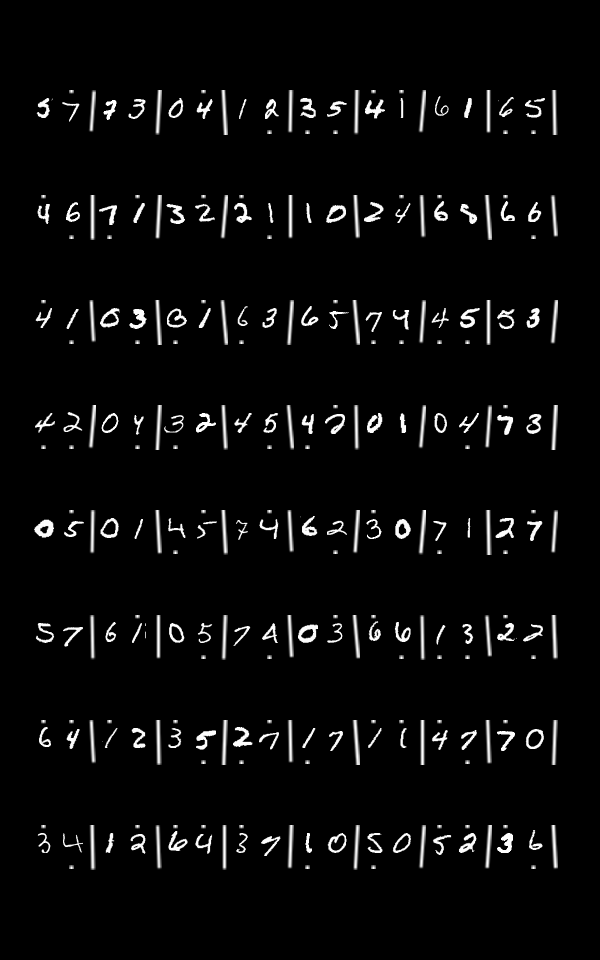 5 7 | 7 3 | 0 4 | 1 2 | 3 5 | 4 1 | 6 1 | 6 5 |
4 6 | 7 1 | 3 2 | 2 1 | 1 0 | 2 4 | 6 5 | 6 6 |
4 1 | 0 3 | 0 1 | 6 3 | 6 5 | 7 4 | 4 5 | 5 3 |
4 2 | 0 4 | 3 2 | 4 5 | 4 2 | 0 1 | 0 4 | 7 3 |
0 5 | 0 1 | 4 5 | 7 4 | 6 2 | 3 0 | 7 1 | 2 7 |
5 7 | 6 1 | 0 5 | 7 4 | 0 3 | 6 6 | 1 3 | 2 2 |
6 4 | 1 2 | 3 5 | 2 7 | 1 7 | 1 1 | 4 7 | 7 0 |
3 4 | 1 2 | 6 4 | 3 7 | 1 0 | 5 0 | 5 2 | 3 6 |